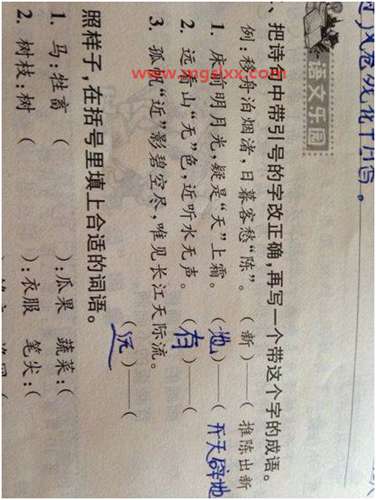 语文乐园
一、把诗句中带引号的字改正确,再写一个带这个字的成语。
例:移舟泊烟渚,日暮客愁“陈”。(新) 推陈出新
1. 床前明月光,疑是“天”上霜。(地)—(开天辟地
2. 远看山“无”色,近听水无声。(有)—(
3. 孤帆“近”影碧空尽,唯见长江天际流。
(远)—(
照样子,在括号里填上合适的词语。
1. 马:牲畜 ( ):瓜果 蔬菜:(
2. 树枝:树 ( ):衣服 笔尖:(
www.mgaxx.com